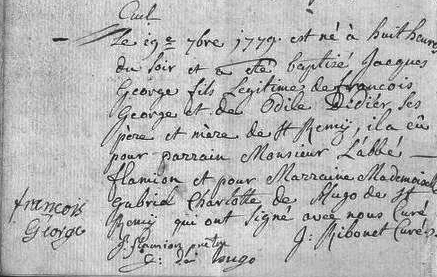 Le 19e 7bre 1779. est né à huit heures
du soir et a été baptizé Jacques
George fils Legitime de françois
George et de Odile Didier, ses
père et mère de St Remij, il a eû
pour parrain Monsieur L'abbé
flamion et pour Marraine Mademoiselle
Gabriel Charlotte de Hugo de St
Remij qui ont signé avec nous Curé
françois
George
prêtre J: Ribonet Curé
hugo